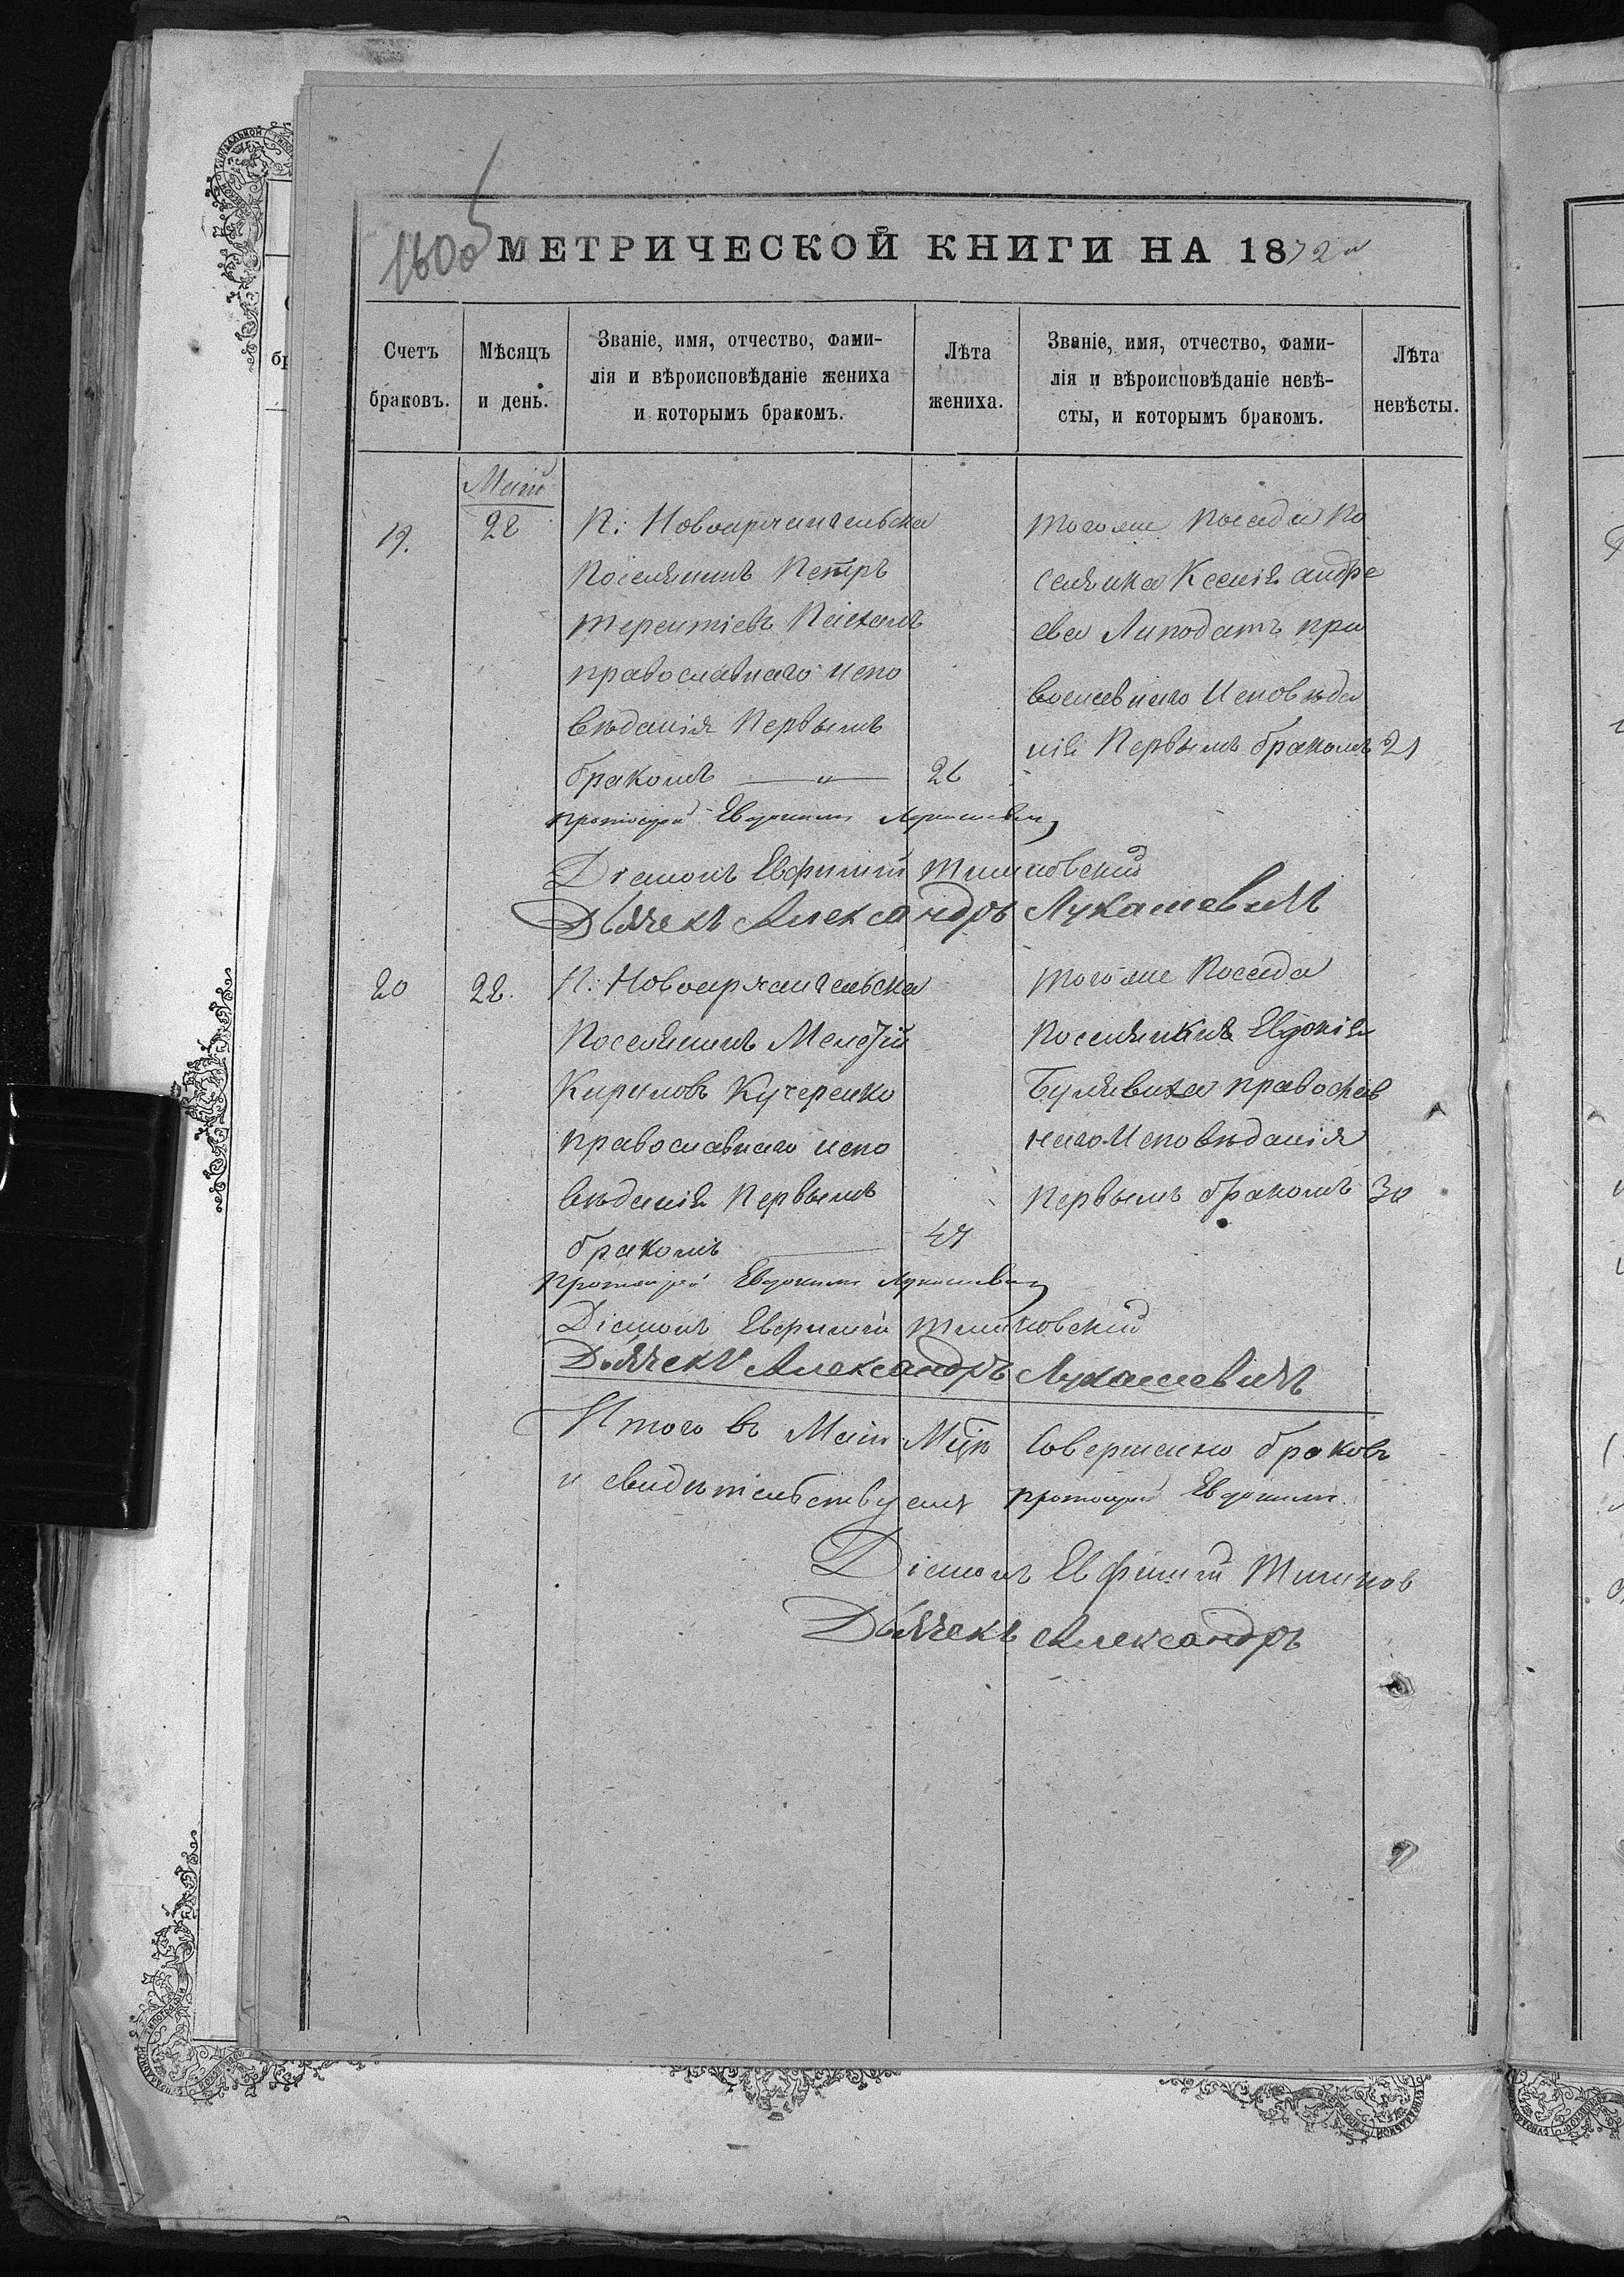 МЕТРИЧЕСКОЙ КНИГИ НА 1872
Счетъ браковъ.
Мѣсяцъ и день.
Званіе, имя, отчество, фами-
лія и вѣроисповѣданіе жениха
и которымъ бракомъ.
Лѣта жениха.
Званіе, имя, отчество, фами-
лія и вѣроисповѣданіе невѣ-
сты, и которымъ бракомъ.
Лѣта невѣсты.
Маій
19.
22
П: Новоархангельска
Поселянинъ Петръ
Терентіевъ
православнаго испо
вѣданія Первымъ
бракомъ — „ — 26
тогоже Посада По
селянка Ксенія Андре
ева Липодатъ пра
вославнаго Исповѣда
нія Первымъ бракомъ 21
протоіерей Евдокимъ Лукашевичъ
Діаконъ Евфимій
Дьячекъ Александръ Лукашевичъ
20
22.
П: Новоархангельска
Поселянинъ
Кириловъ Кучеренко
православнаго испо
вѣданія Первымъ
бракомъ —
тогоже Посада
Поселянка Евдокія
православ
наго Исповѣданія
Первымъ бракомъ 30
протоіерей Евдокимъ Лукашевичъ
Діаконъ Евфимій
Дьячекъ Александръ Лукашевичъ
Итого въ Маіи Мцѣ Совершено браковъ
и свидѣтельствуемъ протоіерей Евдокимъ
Діаконъ Евфимій
Дьячекъ Александръ